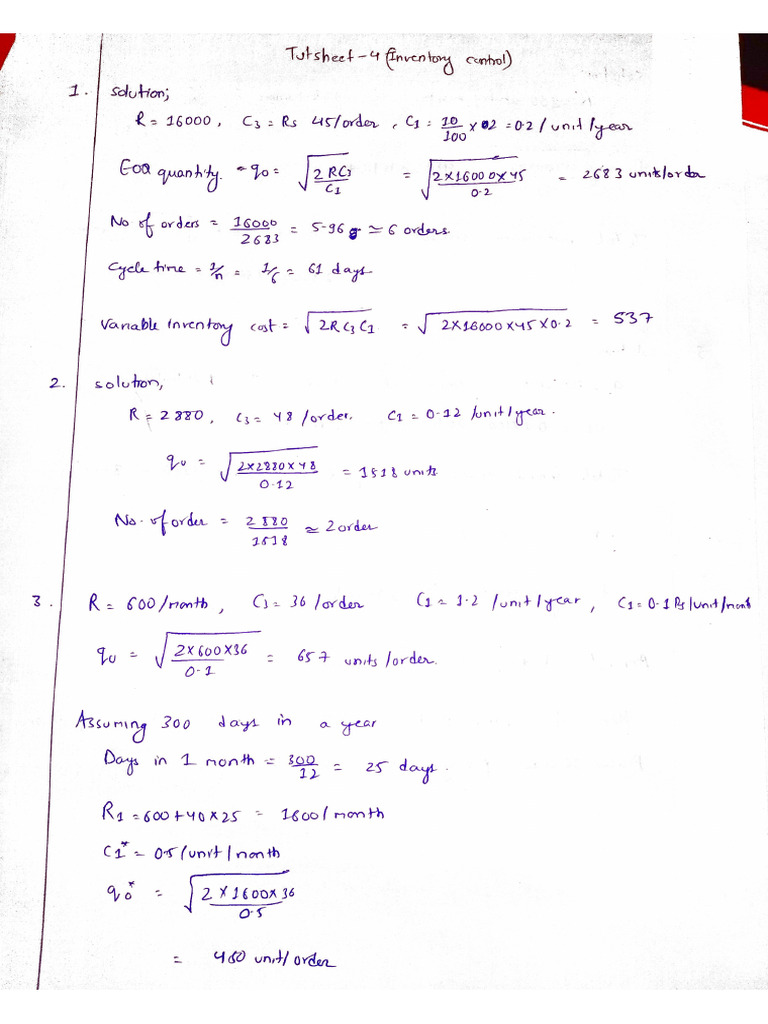 Tutsheet-4 (Inventory control)
1. Solution;
R = 16000, C3 = Rs 45/order, C1 = 10/100 × 02 = 0.2 / unit / year
EOQ quantity. - q0 = √(2RC3/C1) = √(2×16000×45/0.2) = 2683 units/order
No of orders = 16000/2683 = 5.96 ≃ 6 orders.
Cycle time = 1/n = 1/6 = 61 days
Variable inventory cost = √(2RC3C1) = √(2×16000×45×0.2) = 537
2. solution,
R = 2880, C3 = 48 /order. C1 = 0.12 /unit/year.
q0 = √(2×2880×48/0.12) = 1518 units
No. of order = 2880/1518 ≃ 2 order
3. R = 600/month, C3 = 36 /order C1 = 1.2 /unit/year, C1 = 0.1 Rs/unit/mont
q0 = √(2×600×36/0.1) = 657 units/order.
Assuming 300 days in a year
Days in 1 month = 300/12 = 25 days.
R1 = 600+40×25 = 1600/month
C1* = 0.5/unit/month
q0* = √(2×1600×36/0.5)
= 480 unit/order